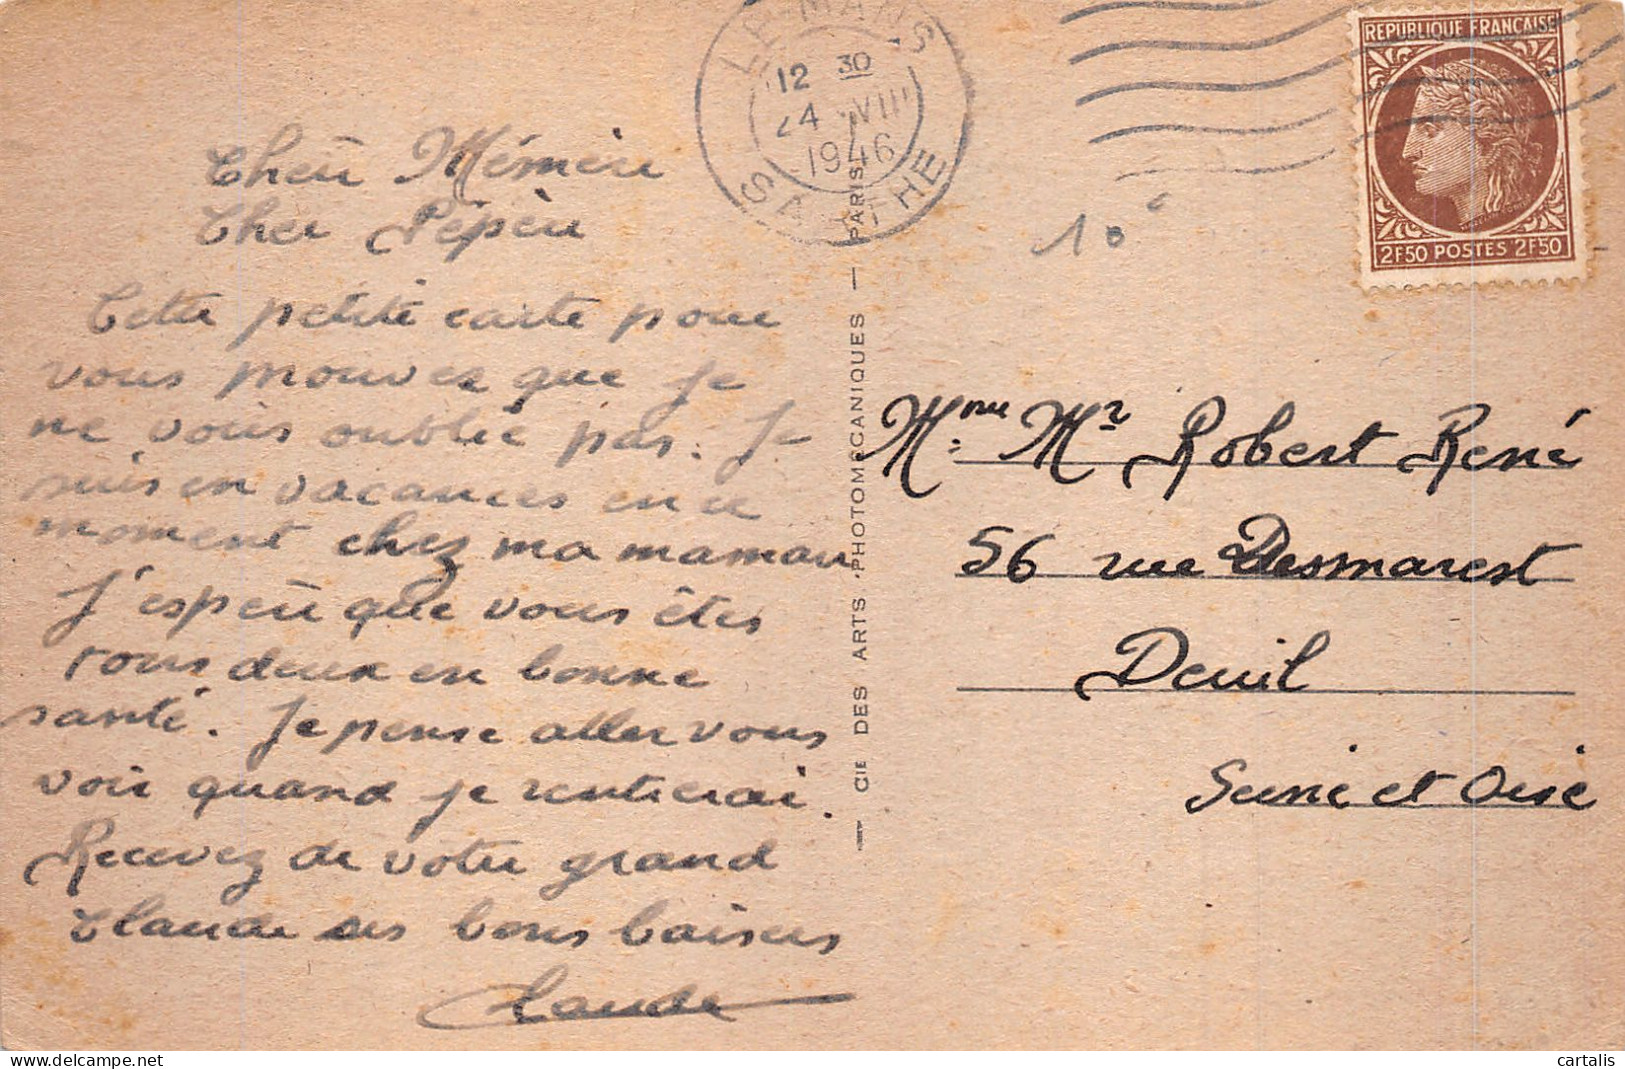 LE MANS
12 30
24 VIII
1946
SARTHE
REPUBLIQUE FRANÇAISE
2F50 POSTES 2F50
10
Chère Mémère
Cher Pépère
Cette petite carte pour
vous prouver que je
ne vous oublie pas. Je
suis en vacances en ce
moment chez ma maman
J'espère que vous êtes
tous deux en bonne
santé. Je pense aller vous
voir quand je rentrerai.
Recevez de votre grand
Claude ses bons baisers
Claude
CIE DES ARTS PHOTOMÉCANIQUES — PARIS
Mme Mr Robert René
56 rue Desmarest
Deuil
Seine et Oise
cartalis